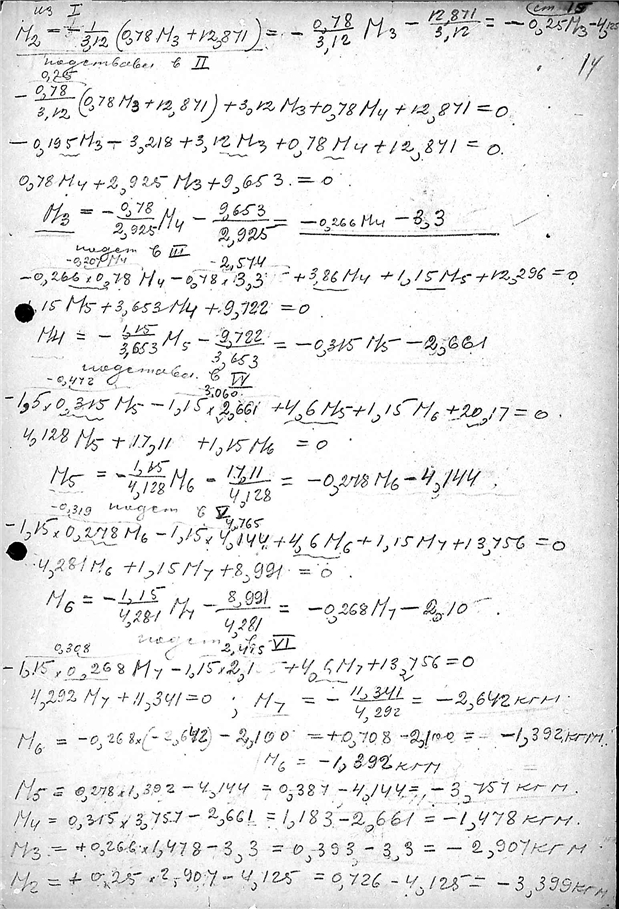 из I
ст 15
M₂ = - 1/3,12 (0,78 M₃ + 12,871) = - 0,78/3,12 M₃ - 12,871/3,12 = - 0,25 M₃ - 4,125
14
подставл в II
0,25
- 0,78/3,12 (0,78 M₃ + 12,871) + 3,12 M₃ + 0,78 M₄ + 12,871 = 0
- 0,195 M₃ - 3,218 + 3,12 M₃ + 0,78 M₄ + 12,871 = 0.
0,78 M₄ + 2,925 M₃ + 9,653 = 0
M₃ = - 0,78/2,925 M₄ - 9,653/2,925 = -0,266 M₄ - 3,3
подст в III
-0,207 M₄ -2,574
-0,266 × 0,78 M₄ - 0,78 × 3,3 + 3,86 M₄ + 1,15 M₅ + 12,296 = 0
1,15 M₅ + 3,653 M₄ + 9,722 = 0
M₄ = - 1,15/3,653 M₅ - 9,722/3,653 = -0,315 M₅ - 2,661
подставл в IV
-0,472 3,060
-1,5 × 0,315 M₅ - 1,15 × 2,661 + 4,6 M₅ + 1,15 M₆ + 20,17 = 0.
4,128 M₅ + 17,11 + 1,15 M₆ = 0
M₅ = - 1,15/4,128 M₆ - 17,11/4,128 = -0,278 M₆ - 4,144.
-0,319 подст в V 4,765
-1,15 × 0,278 M₆ - 1,15 × 4,144 + 4,6 M₆ + 1,15 M₇ + 13,756 = 0
4,281 M₆ + 1,15 M₇ + 8,991 = 0.
M₆ = - 1,15/4,281 M₇ - 8,991/4,281 = -0,268 M₇ - 2,10.
подст в VI
0,308 2,415
-1,15 × 0,268 M₇ - 1,15 × 2,1 + 4,6 M₇ + 13,756 = 0
4,292 M₇ + 11,341 = 0 ; M₇ = - 11,341/4,292 = - 2,642 кгм.
M₆ = -0,268 × (-2,642) - 2,100 = +0,708 - 2,100 = - 1,392 кгм.
M₆ = -1,392 кгм
M₅ = 0,278 × 1,392 - 4,144 = 0,387 - 4,144 = - 3,757 кгм.
M₄ = 0,315 × 3,757 - 2,661 = 1,183 - 2,661 = -1,478 кгм.
M₃ = +0,266 × 1,478 - 3,3 = 0,393 - 3,3 = - 2,907 кгм
M₂ = + 0,25 × 2,907 - 4,125 = 0,726 - 4,125 = - 3,399 кгм